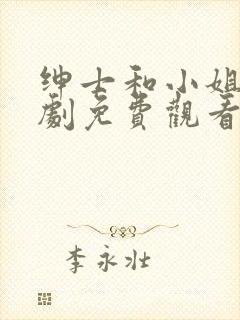 绅士和小姐
劇免費觀看
李永壮